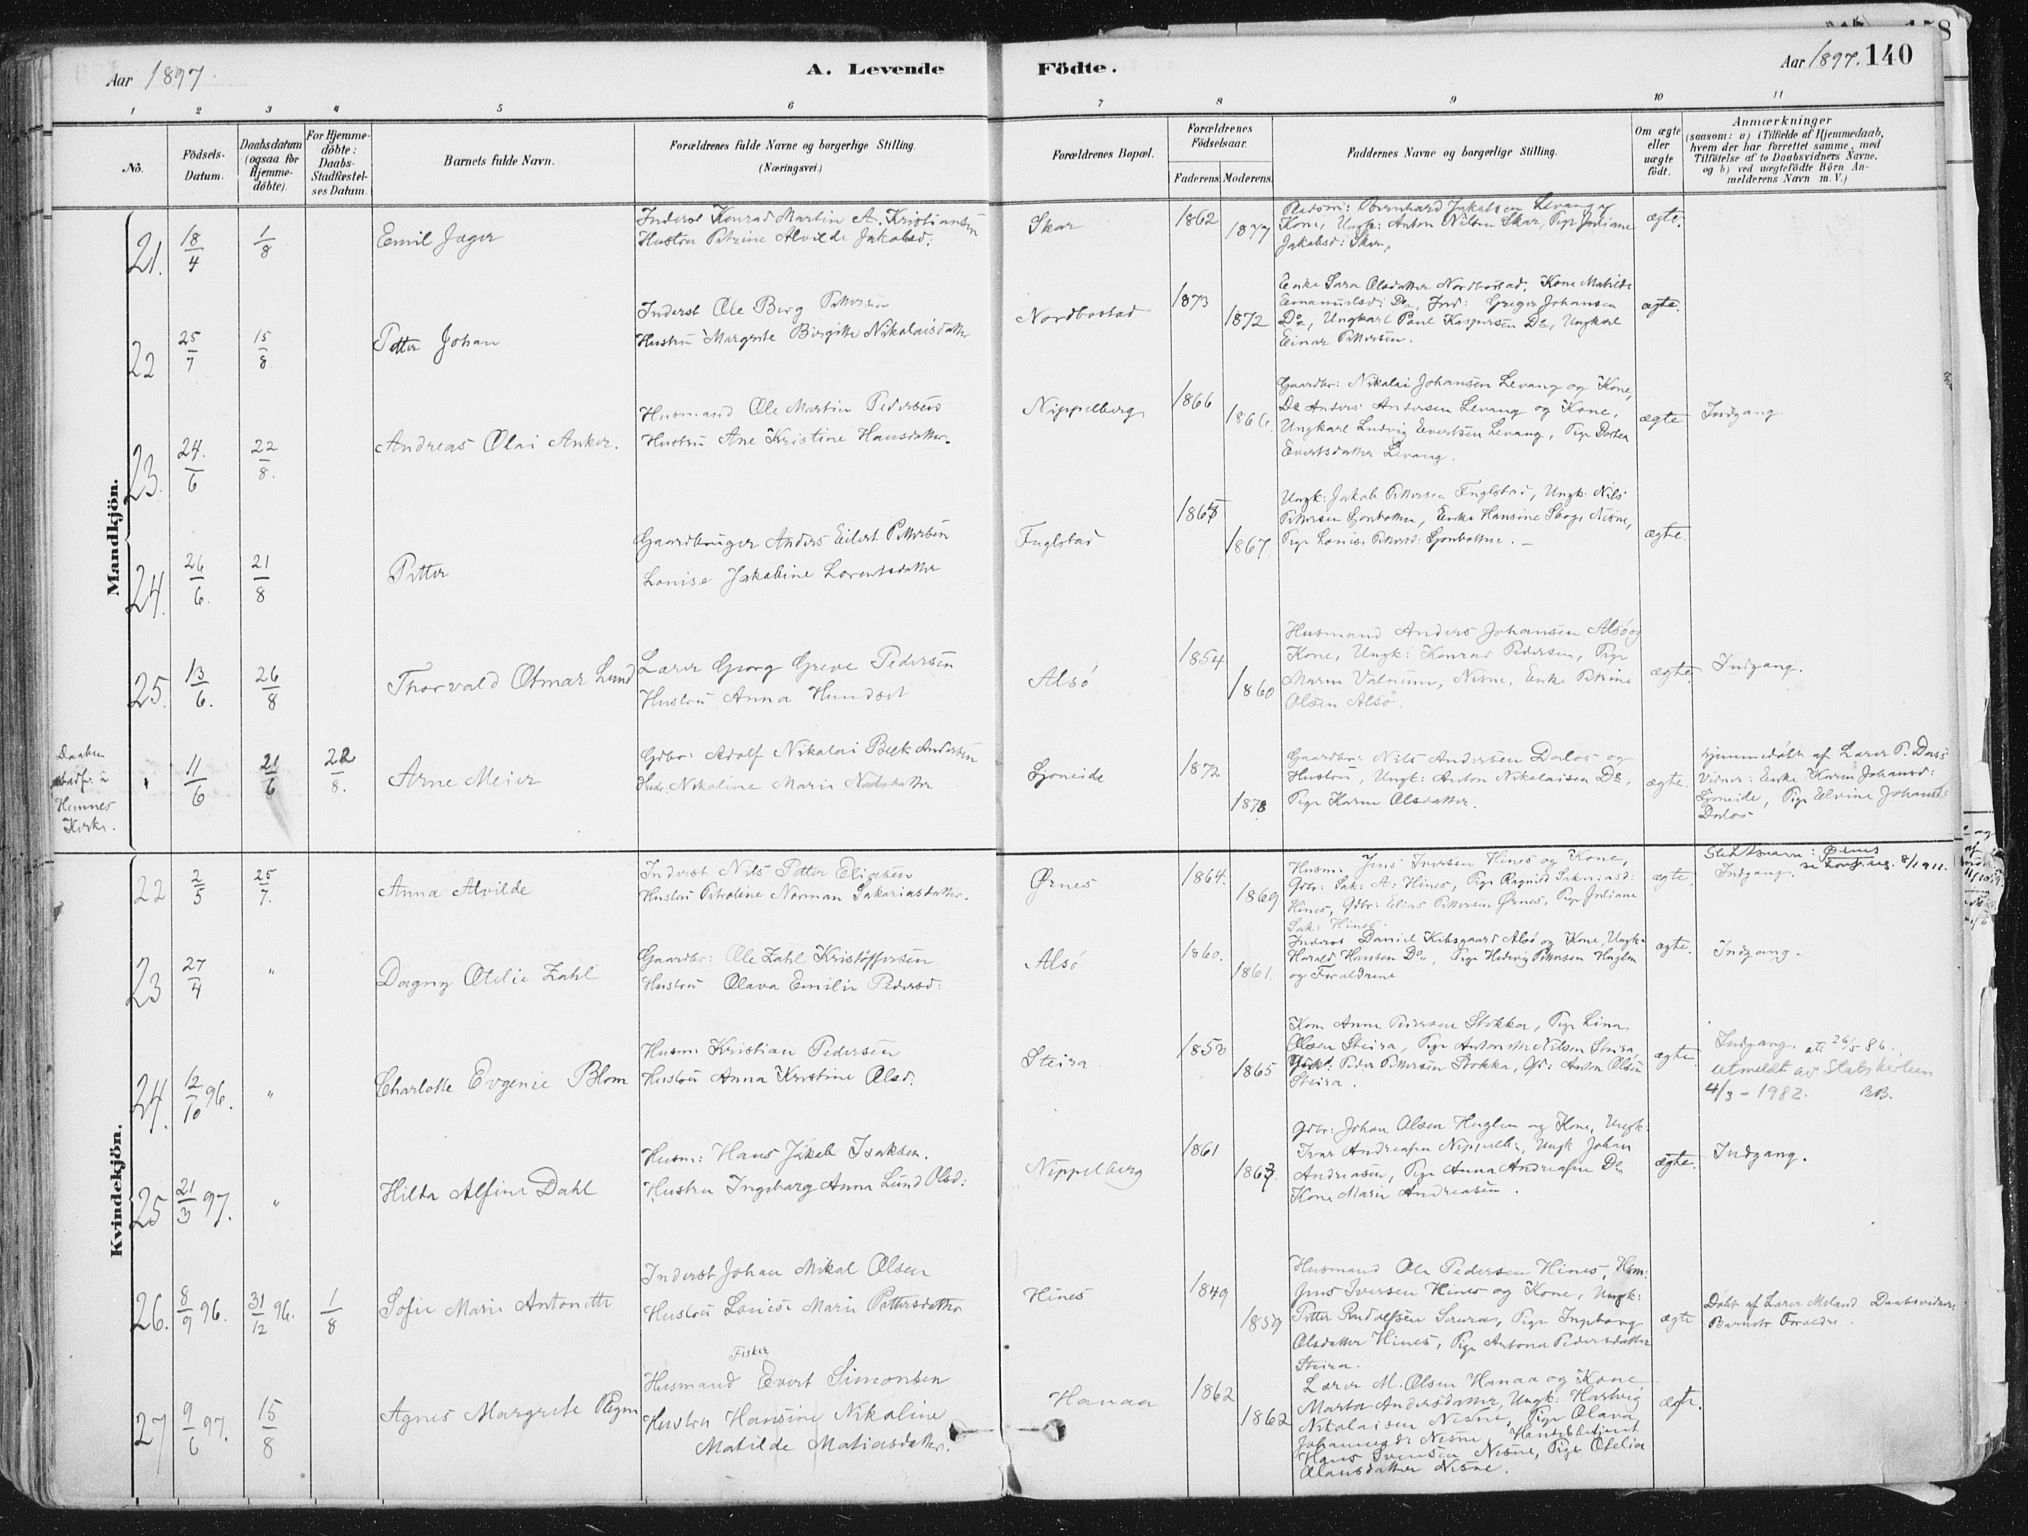 Aar 1897.
A. Levende
Födte.
Aar 1897. 140
1 2 3 4 5 6 7 8 9 10 11
No.
Födsels-
Datum.
Daabsdatum
(ogsaa for
Hjemme-
döbte).
For Hjemme-
döbte:
Daabs-
Stadfæstel-
ses Datum.
Barnets fulde Navn.
Forældrenes fulde Navne og borgerlige Stilling.
(Næringsvei.)
Forældrenes Bopæl.
Forældrenes
Födselsaar.
Faderens. Moderens.
Faddernes Navne og borgerlige Stilling.
Om ægte
eller
uægte
födt.
Anmærkninger
(saasom: a) i Tilfælde af Hjemmedaab,
hvem der har forrettet samme, med
Tilföielse af to Daabsvidners Navne,
og b) ved uægtefödte Börn An-
melderens Navn m. V.)
Mandkjön.
21. 18/4 1/8 Emil Jæger
Inderst Konrad Martin A. Kristiansen
Hustru Petrine Alvilde Jakobsd.
Skar
1862 1877
Bernhard Jakobsen Levang og
Kone, Ungk: Anton Nilsen Skar, Pige Juliane
Jakobsd: Skar,
ægte.
22 25/7 15/8 Petter Johan
Inderst Ole Berg Pettersen
Hustru Margrete Birgitte Nikolaisdatter
Nordbostad
1873 1872
Enke Sara Olsdatter Nordbostad. Kone Matilde
Emanuelsd: Do, Ind: Greger Johansen
Do, Ungkarl Paul Kaspersen Do, Ungkarl
Einar Pettersen.
ægte.
23. 24/6 22/8. Andreas Olai Anker.
Husmand Ole Martin Pedersen
Hustru Ane Kristine Hansdatter.
Nippelberg
1866 1866.
Gaardbr: Nikolai Johansen Levang og Kone,
Do Anders Andersen Levang og Kone,
Ungkarl Ludvig Evertsen Levang, Pige Dortea
Evertsdatter Levang.
ægte
Indgang
24. 26/6. 21/8 Petter
Gaardbruger Anders Eilert Pettersen
Louise Jakobine Lorentsdatter
Fuglstad
1865 1867.
Ungk: Jakob Pettersen Fuglstad, Ungk: Nils
Pettersen Sjonbotten, Enke Hansine Skog, Nesne,
Pige Louise Petersd: Sjonbotten. —
ægte.
25. 13/6. 26/8 Thorvald Otmar Lund
Lærer Georg Greve Pedersen
Hustru Anna Hundset
Alsö
1854 1860
Husmand Anders Johansen Alsö og
Kone, Ungk: Konrad Pedersen, Pige
Maren Valnum, Nesne, Enke Petrine
Olsen Alsö.
ægte.
Indgang.
Daaben
stadf. i
Hemnes
Kirke.
" 11/6 21/6 22/8. Arne Meier
Gdbr: Adolf Nikolai Beck Andersen
Nikoline Marie Nilsdatter
Sjoneide
1872 1878
Gaardbr: Nils Andersen Dalos og
Hustru, Ungk: Anton Nikolaisen Do,
Pige Karen Olsdatter.
ægte.
Hjemmedöbt af Lærer P. Dass
Vidner: Enke Karen Johansd:
Sjoneide, Pige Elvine Johansd:
Dalos
Kvindekjön.
22 2/5 25/7. Anna Alvilde
Inderst Nils Petter Eliesen
Hustru Petroline Norman Sakariasdatter.
Ørnes
1864. 1869
Husm: Jens Iversen Hines og Kone,
Gdbr: Sak: A: Hines, Pige Ragnild Sakariasd:
Hines, Gdbr: Elias Pettersen Ørnes, Pige Juliane
Sak: Hines.
ægte.
Slektsnavn: Ørnes
8/1911.
Indgang.
23 27/4 " Dagny Otelie Zahl
Gaardbr: Ole Zahl Kristoffersen
Hustru Olava Emilie Pedersd:
Alsö
1860. 1861.
Inderst Daniel Kibsgaard Alsö og Kone, Ungk:
Harald Hansen Do, Pige Hedvig Pettersen Huglen
og Forældrene
ægte.
Indgang.
24. 12/10 96. " Charlotte Evgenie Blom
Husm: Kristian Pedersen
Hustru Anna Kristine Olsd:
Steira
1853 1865
Kone Anne Pedersen Stokka, Pige Lina
Olsen Steira, Pige Antonette Nilsen Steira,
Gdbr: Peder Pettersen Stokka, Anton Olsen
Steira.
ægte
Indgang. att 26/5-86.
utmeldt av Statskirken
4/3-1982. BB.
25 21/3 97. " Hilda Alfine Dahl
Husm: Hans Jakob Isaksen.
Hustru Ingeborg Anna Lund Olsd:
Nippelberg
1861 1867.
Gdbr: Johan Olsen Huglen og Kone, Ungk:
Ivar Andreasen Nippelb: Ungk Johan
Andreasen, Pige Anna Andreasen Do
Kone Marie Andreasen.
ægte.
Indgang.
26. 8/9 96. 31/12 96. 1/8 Sofie Marie Antonette
Inderst Johan Mikal Olsen
Hustru Louise Marie Pettersdatter
Hines
1849 1859
Husmand Ole Pedersen Hines, Husm:
Jens Iversen Hines og Kone, Ungk:
Petter Rudolfsen, Pige Ingeborg
Olsdatter Hines, Pige Antona Pedersdatter
Steira.
ægte
Döbt af Lærer Meland. Daabsvidner:
Barnets Forældre.
27 9/6 97. 15/8 Agnes Margrete
Fisker
Husmand Evert Simonsen
Hustru Hansine Nikoline
Matilde Matiasdatter.
Hanaa
1862 1862
Lærer M. Olsen Hanaa og Kone
Marta Andersdatter, Ungk: Hartvig
Nikolaisen Nesne, Pige Olava
Johannesd: Nesne, Handelsbetjent
Hans Svensen Nesne, Pige Otelia
Olausdatter Nesne.
ægte.